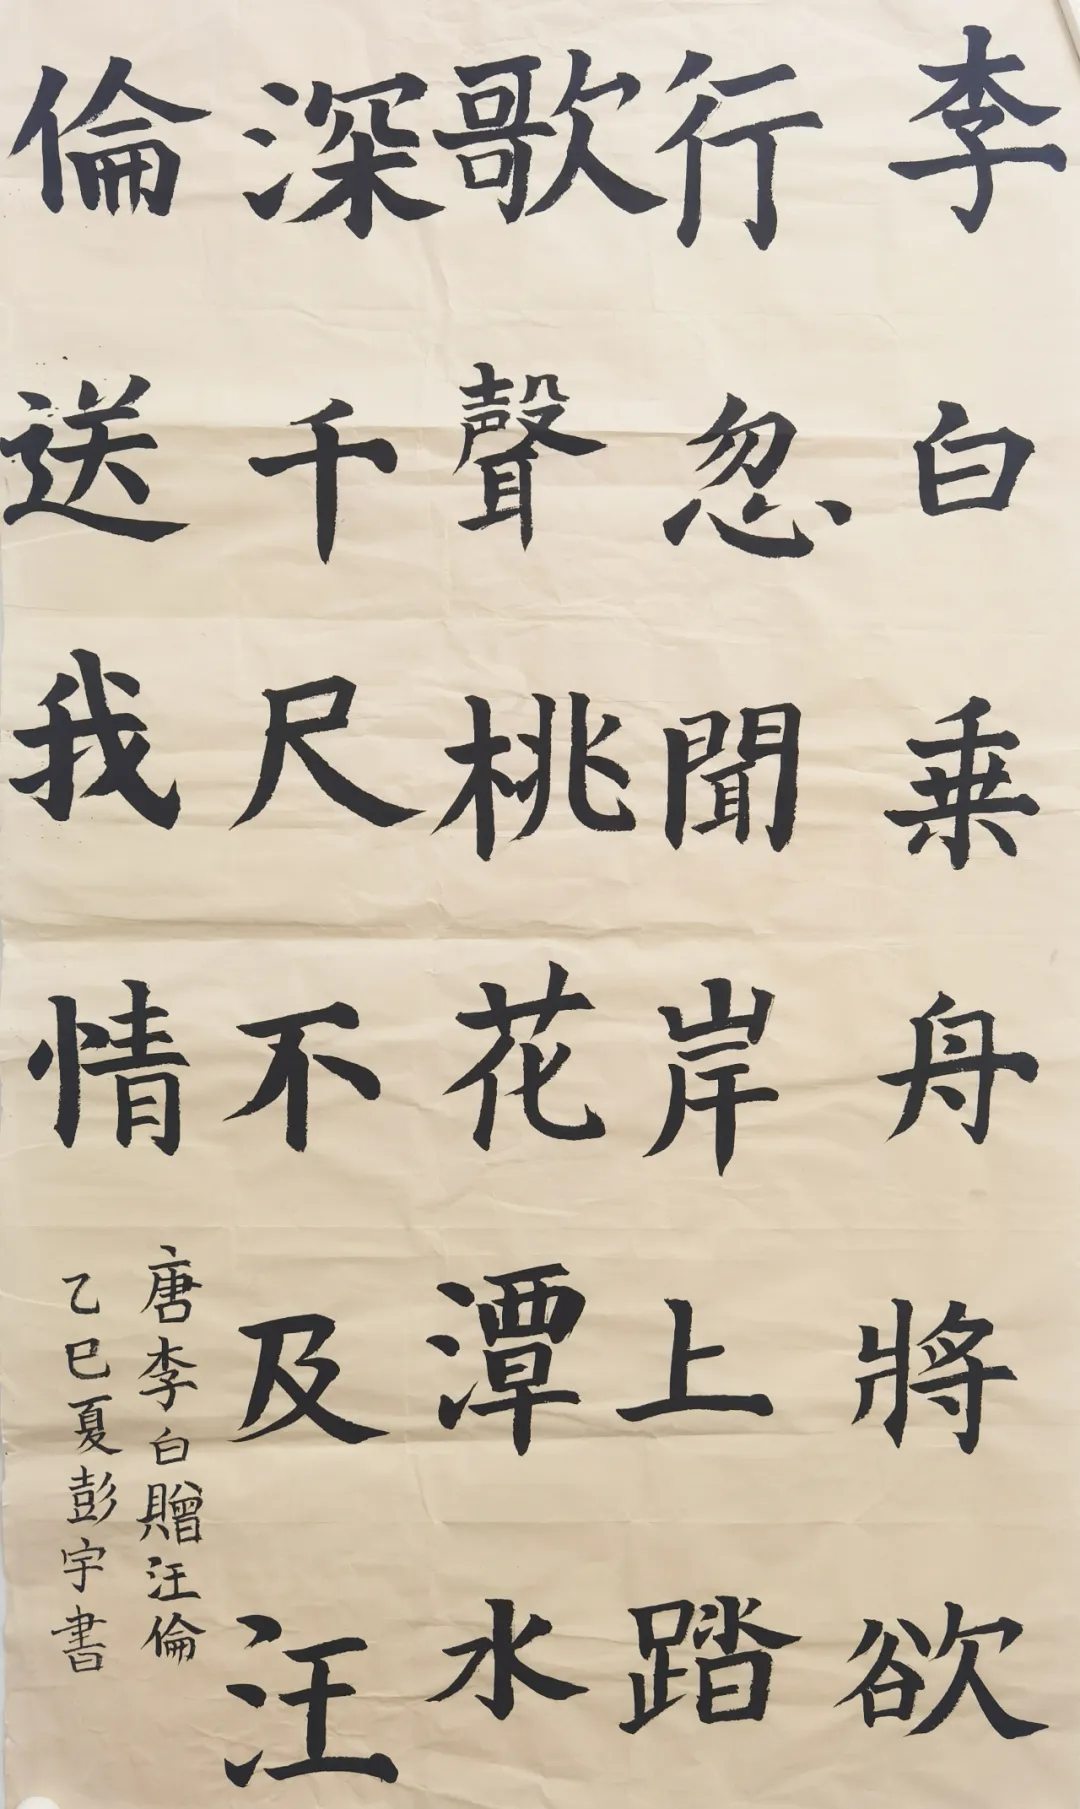 李白乗舟將欲
行忽聞岸上踏
歌聲桃花潭水
深千尺不及汪
倫送我情
唐李白贈汪倫
乙巳夏彭宇書